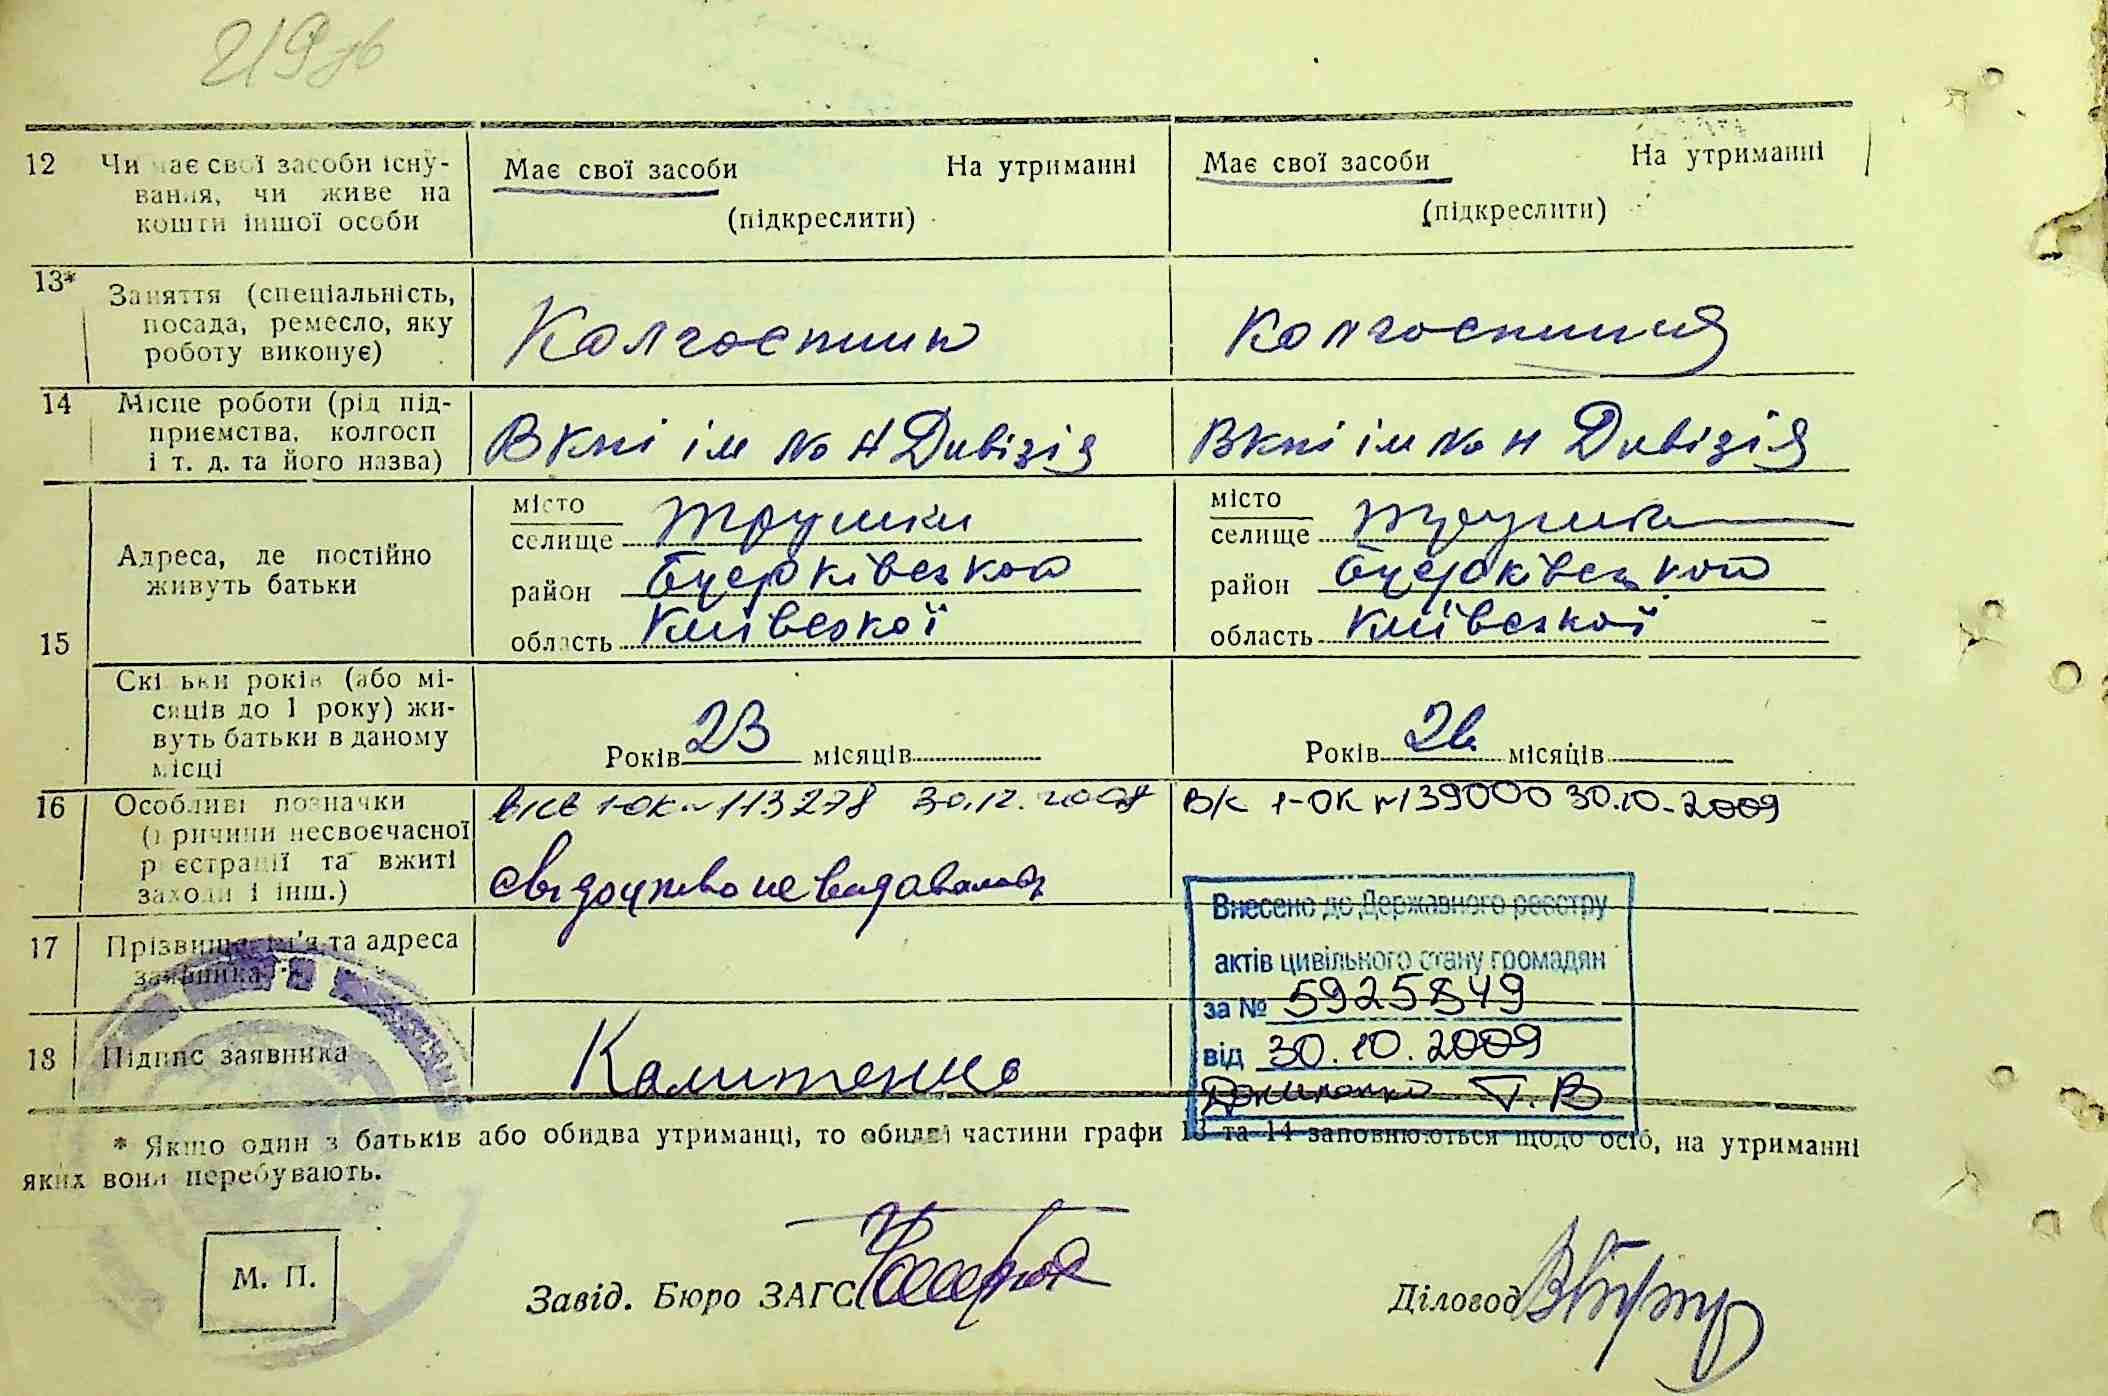 219зв
12 Чи має свої засоби існу-
вання, чи живе на
кошти іншої особи
Має свої засоби На утриманні
(підкреслити)
Має свої засоби На утриманні
(підкреслити)
13* Заняття (спеціальність,
посада, ремесло, яку
роботу виконує)
Колгоспник
Колгоспниця
14 Місце роботи (рід під-
приємства, колгосп
і т. д. та його назва)
ім № Н Дивізія
ім № Н Дивізія
15 Адреса, де постійно
живуть батьки
місто
селище Трушки
район Бцерківского
область Київської
місто
селище Трушки
район Бцерківского
область Київської
Скільки років (або мі-
сяців до 1 року) жи-
вуть батьки в даному
місці
Років 23 місяців
Років 26 місяців
16 Особливі позначки
(причини несвоєчасної
реєстрації та вжиті
заходи і інш.)
1-ОК № 113278 30.12.2008
Свідоцтво не видавалось
В/К 1-ОК №139000 30.10.2009
Внесено до Державного реєстру
актів цивільного стану громадян
за № 5925849
від 30.10.2009
Т. В
17 Прізвище, ім'я та адреса
заявника
18 Підпис заявника
* Якщо один з батьків або обидва утриманці, то обидві частини графи 13 та 14 заповнюються щодо осіб, на утриманні
яких вони перебувають.
М. П.
Завід. Бюро ЗАГС
Діловод